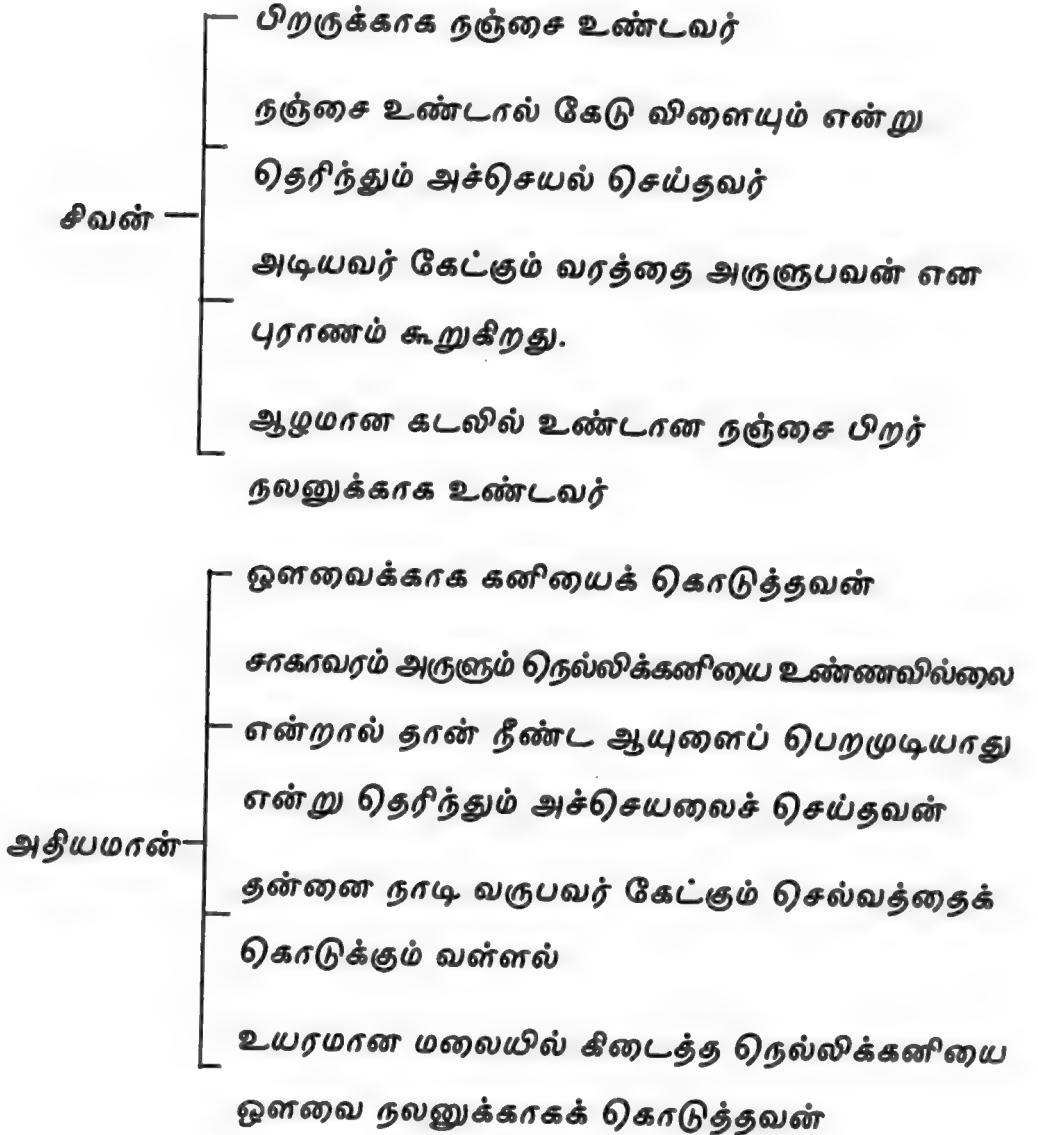 பிறருக்காக நஞ்சை உண்டவர்
நஞ்சை உண்டால் கேடு விளையும் என்று
தெரிந்தும் அச்செயல் செய்தவர்
சிவன்
அடியவர் கேட்கும் வரத்தை அருளுபவன் என
புராணம் கூறுகிறது.
ஆழமான கடலில் உண்டான நஞ்சை பிறர்
நலனுக்காக உண்டவர்
ஔவைக்காக கனியைக் கொடுத்தவன்
சாகாவரம் அருளும் நெல்லிக்கனியை உண்ணவில்லை
என்றால் தான் நீண்ட ஆயுளைப் பெறமுடியாது
என்று தெரிந்தும் அச்செயலைச் செய்தவன்
அதியமான்
தன்னை நாடி வருபவர் கேட்கும் செல்வத்தைக்
கொடுக்கும் வள்ளல்
உயரமான மலையில் கிடைத்த நெல்லிக்கனியை
ஔவை நலனுக்காகக் கொடுத்தவன்